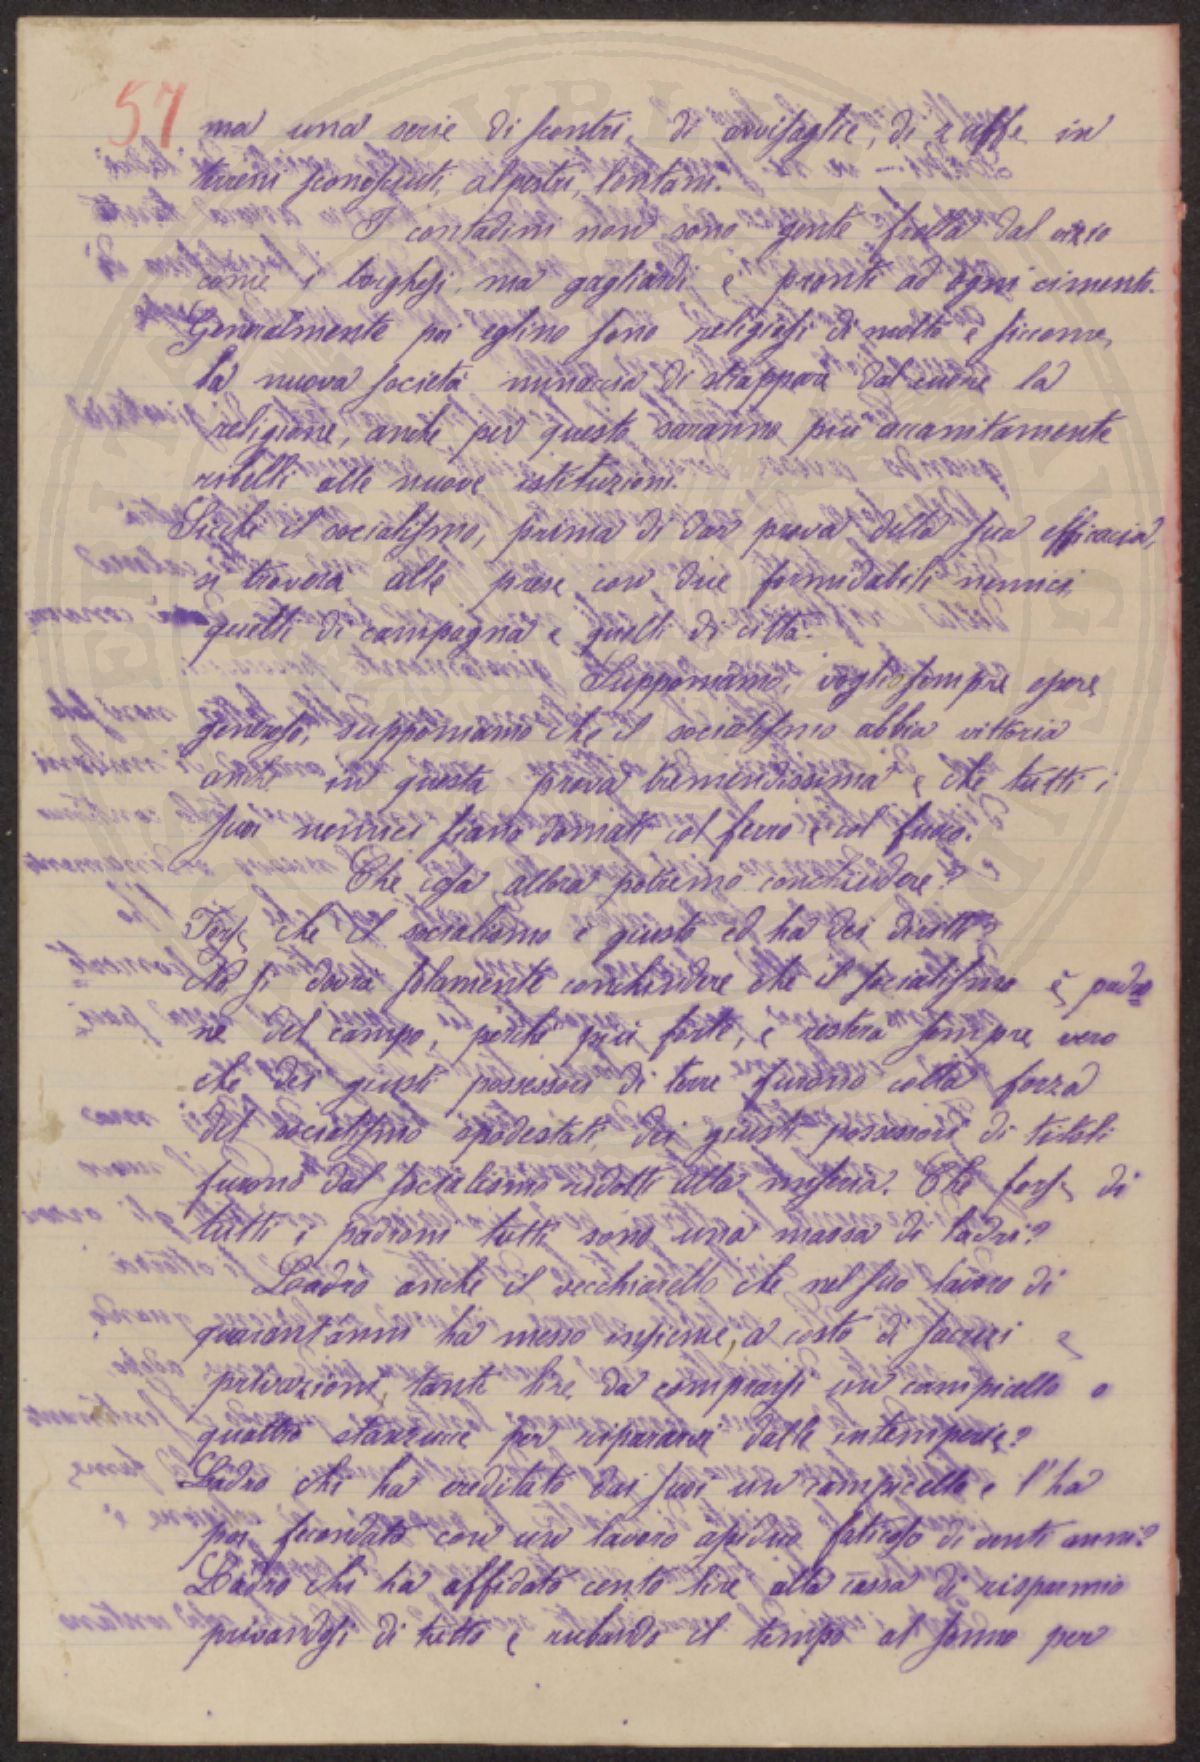 57
ma una serie di scontri, di avvisaglie, di zuffe in
terreni sconosciuti, alpestri, lontani.
I contadini non sono gente frolla dal vizio
come i borghesi, ma gagliardi e pronti ad ogni cimento.
Generalmente poi eglino sono religiosi di molto e siccome
la nuova società minaccia di strappare dal cuore la
religione, anche per questo saranno più accanitamente
ribelli alle nuove istituzioni.
Sicché il socialismo, prima di dar prova della sua efficacia,
si troverà alle prese con due formidabili nemici,
quelli di campagna e quelli di città.
Supponiamo, voglio sempre essere
generoso, supponiamo che il socialismo abbia vittoria
anche in questa prova tremendissima e che tutti i
suoi nemici siano domati col ferro e col fuoco.
Che cosa allora potremo conchiudere?
Forse che il socialismo è giusto ed ha dei diritti?
No si dovrà solamente conchiudere che il socialismo è padro
ne del campo, perché più forte, e resterà sempre vero
che dei giusti possessori di terre furono colla forza
del socialismo spodestati, dei giusti possessori di titoli
furono dal socialismo ridotti alla miseria. Che forse di
tutti i padroni tutti sono una massa di ladri?
Ladro anche il vecchiarello che nel suo lavoro di
quarant'anni ha messo insieme, a costo di sacrizi e
privazioni, tante lire da comprarsi un campicello o
quattro stanzucce per ripararsi dalle intemperie?
Ladro chi ha ereditato dai suoi un campicello e l'ha
poi fecondato con un lavoro assiduo faticoso di venti anni?
Ladro chi ha affidato cento lire alla cassa di risparmio
privandosi di tutto e rubando il tempo al sonno per